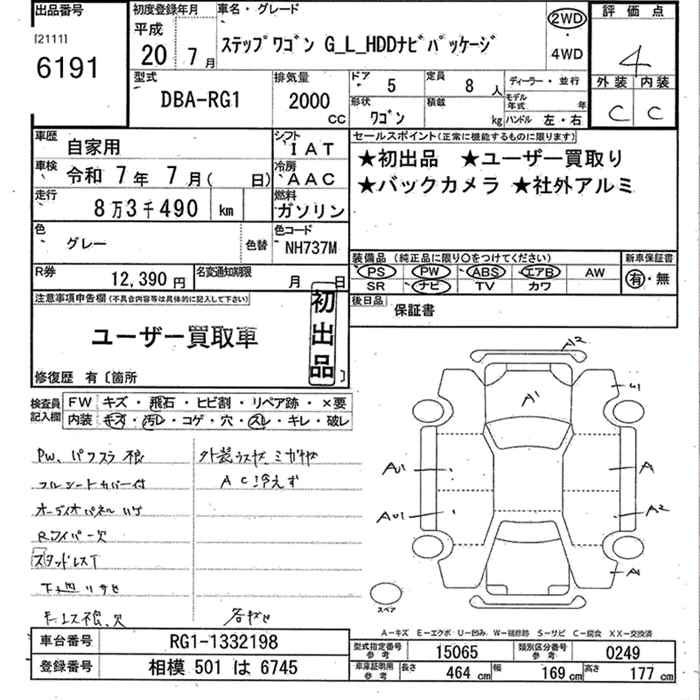 出品番号 初度登録年月 車名・グレード 評価点
[2111] 平成 2WD
6191 20年 7月 ステップワゴン G_L_HDDナビパッケージ ・ 4
4WD
型式 排気量 ドア 5 定員 8人 ディーラー・並行 外装 内装
DBA-RG1 2000 CC 形状 ワゴン 積載 kg モデル年式 年 C C
ハンドル 左・右
車歴 自家用 シフト IAT セールスポイント(正常に機能するものに限ります)
車検 令和 7年 7月( 日) 冷房 AAC ★初出品 ★ユーザー買取り
走行 8万3千490 km 燃料 ガソリン ★バックカメラ ★社外アルミ
色 グレー 色替 色コード NH737M
装備品 (純正品に限り○をつけてください) 新車保証書
R券 12,390円 名変通知期限 月 日 PS PW ABS エアB AW 有・無
SR ナビ TV カワ
注意事項申告欄(不具合内容等は具体的に記入して下さい) 初出品 後日品 保証書
ユーザー買取車
修復歴 有〔箇所 〕
検査員記入欄 FW キズ・飛石・ヒビ割・リペア跡・×要
内装 キズ・汚レ・コゲ・穴・スレ・キレ・破レ
A2
A1
U1
AU1 A
AU1 A2
A
PW、パワスラ 外装
フルシートカバー付 AC冷えず
オーディオパネル
Rワイパー欠
スタッドレスT
スペア
A-キズ E-エクボ U-凹み W-補修跡 S-サビ C-腐食 XX-交換済
車台番号 RG1-1332198 型式指定番号 参考 15065 類別区分番号 参考 0249
登録番号 相模 501 は 6745 車庫証明用 参考 長さ 464 cm 幅 169 cm 高さ 177 cm